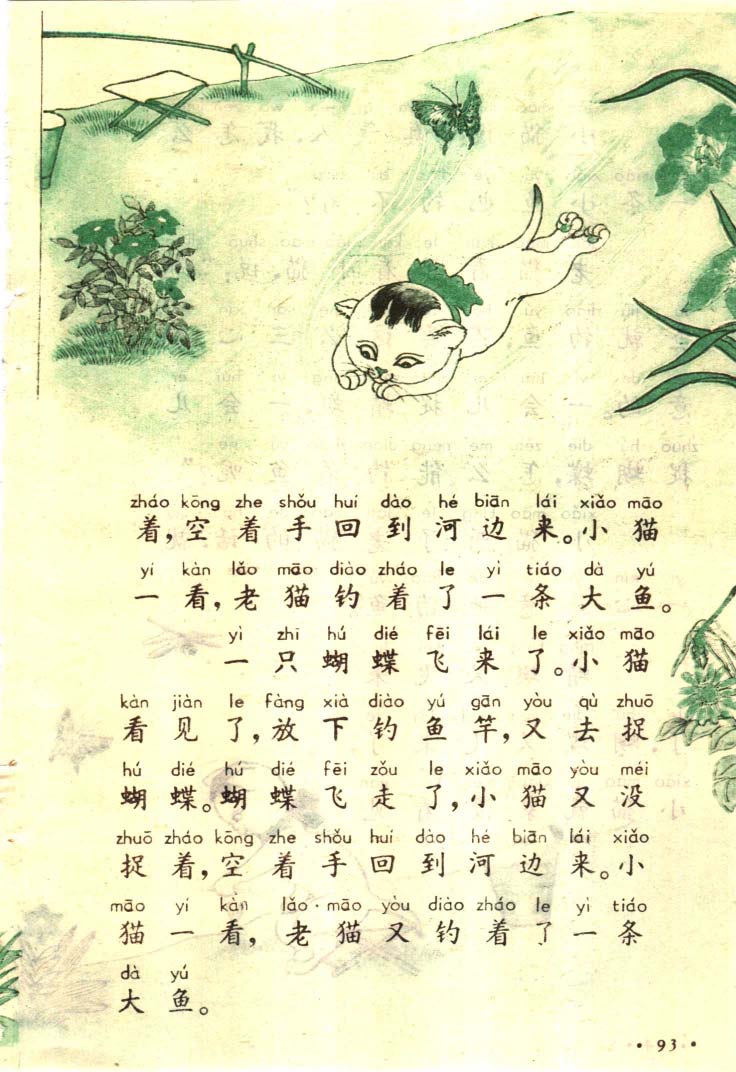 zháo kōng zhe shǒu huí dào hé biān lái xiǎo māo
着，空着手回到河边来。小猫
yí kàn lǎo māo diào zháo le yì tiáo dà yú
一看，老猫钓着了一条大鱼。
yì zhī hú dié fēi lái le xiǎo māo
一只蝴蝶飞来了。小猫
kàn jiàn le fàng xià diào yú gān yòu qù zhuō
看见了，放下钓鱼竿，又去捉
hú dié hú dié fēi zǒu le xiǎo māo yòu méi
蝴蝶。蝴蝶飞走了，小猫又没
zhuō zháo kōng zhe shǒu huí dào hé biān lái xiǎo
捉着，空着手回到河边来。小
māo yí kàn lǎo māo yòu diào zháo le yì tiáo
猫一看，老猫又钓着了一条
dà yú
大鱼。
· 93 ·